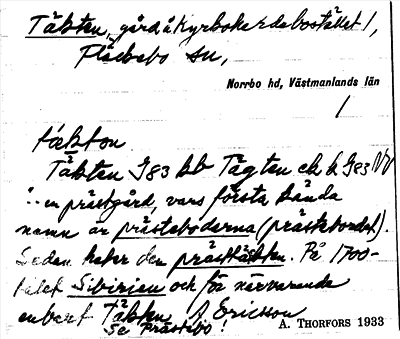 Täkten, gård å Kyrkoherdebostället 1,
Fläckebo sn,
Norrbo hd, Västmanlands län
1
täkton
Täkten J83 bb Tägten ek k J83 NV
"en prästgård, vars första kända
namn är prästeboderna (prästebordet).
Sedan heter den prästtäkten. På 1700-
talet Sibirien och för närvarande
enbart Täkten. A Ericsson
Se Prästbo!
A. THORFORS 1933